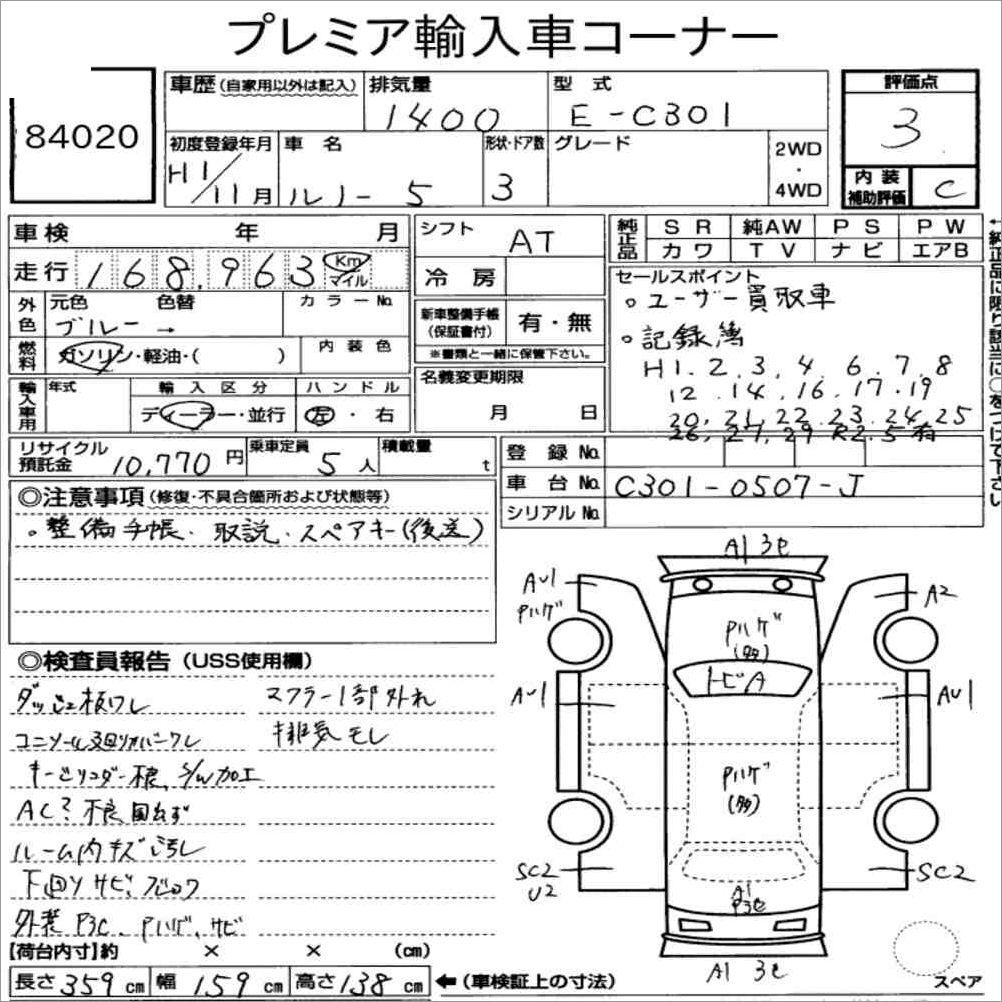 プレミア輸入車コーナー
84020
車歴(自家用以外は記入) 排気量 型式 評価点
1400 E-C301 3
初度登録年月 車名 形状・ドア数 グレード 2WD・4WD
H1/11月 ルノー 5 3
内装補助評価 C
車検 年 月
シフト AT
純正品 SR 純AW PS PW
カワ TV ナビ エアB
←純正品に限り該当に○をつけて下さい
走行 168,963 Km マイル
冷房
セールスポイント
。ユーザー買取車
外色 元色 色替 カラーNo.
ブルー →
新車整備手帳(保証書付) 有・無
※書類と一緒に保管下さい。
。記録簿
H1. 2. 3. 4. 6. 7. 8
12. 14. 16. 17. 19
20. 21. 22. 23. 24. 25
26. 27. 29 R2.5 有
燃料 ガソリン・軽油・( ) 内装色
名義変更期限
月 日
輸入車用 年式 輸入区分 ハンドル
ディーラー・並行 左・右
リサイクル預託金 10,770円 乗車定員 5人 積載量 t
登録No.
車台No. C301-0507-J
シリアルNo.
◎注意事項(修復・不具合箇所および状態等)
。整備手帳. 取説. スペアキー(後送)
◎検査員報告(USS使用欄)
ダッシュ板ワレ マフラー1部外れ
排気モレ
加工
AC? 不良
ルーム内キズ汚レ
下回りサビ,
外装 P3C. Pハゲ, サビ
A1 3C
AU1
Pハゲ
A2
Pハゲ
(多)
トビA
AU1
AU1
Pハゲ
(多)
SC2
U2
SC2
A1
P3C
A1 3C
スペア
【荷台内寸】約 × × (cm)
長さ359cm 幅159cm 高さ138cm ←(車検証上の寸法)